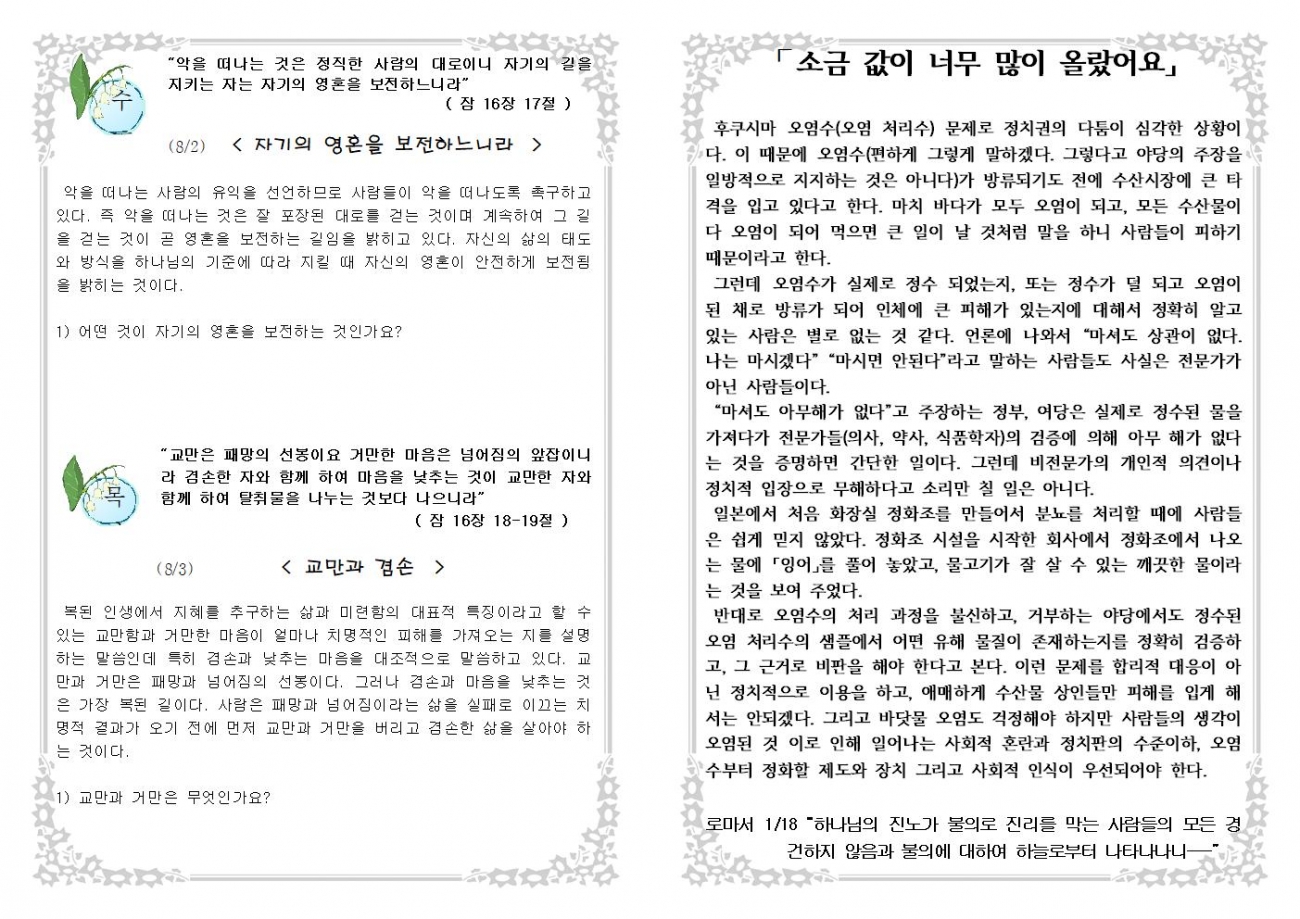 “악을 떠나는 것은 정직한 사람의 대로이니 자기의 길을
지키는 자는 자기의 영혼을 보전하느니라”
( 잠 16장 17절 )
수
(8/2) < 자기의 영혼을 보전하느니라 >
악을 떠나는 사람의 유익을 선언하므로 사람들이 악을 떠나도록 촉구하고
있다. 즉 악을 떠나는 것은 잘 포장된 대로를 걷는 것이며 계속하여 그 길
을 걷는 것이 곧 영혼을 보전하는 길임을 밝히고 있다. 자신의 삶의 태도
와 방식을 하나님의 기준에 따라 지킬 때 자신의 영혼이 안전하게 보전됨
을 밝히는 것이다.
1) 어떤 것이 자기의 영혼을 보전하는 것인가요?
“교만은 패망의 선봉이요 거만한 마음은 넘어짐의 앞잡이니
라 겸손한 자와 함께 하여 마음을 낮추는 것이 교만한 자와
함께 하여 탈취물을 나누는 것보다 나으니라”
( 잠 16장 18-19절 )
목
(8/3) < 교만과 겸손 >
복된 인생에서 지혜를 추구하는 삶과 미련함의 대표적 특징이라고 할 수
있는 교만함과 거만한 마음이 얼마나 치명적인 피해를 가져오는 지를 설명
하는 말씀인데 특히 겸손과 낮추는 마음을 대조적으로 말씀하고 있다. 교
만과 거만은 패망과 넘어짐의 선봉이다. 그러나 겸손과 마음을 낮추는 것
은 가장 복된 길이다. 사람은 패망과 넘어짐이라는 삶을 실패로 이끄는 치
명적 결과가 오기 전에 먼저 교만과 거만을 버리고 겸손한 삶을 살아야 하
는 것이다.
1) 교만과 거만은 무엇인가요?
「 소금 값이 너무 많이 올랐어요」
후쿠시마 오염수(오염 처리수) 문제로 정치권의 다툼이 심각한 상황이
다. 이 때문에 오염수(편하게 그렇게 말하겠다. 그렇다고 야당의 주장을
일방적으로 지지하는 것은 아니다)가 방류되기도 전에 수산시장에 큰 타
격을 입고 있다고 한다. 마치 바다가 모두 오염이 되고, 모든 수산물이
다 오염이 되어 먹으면 큰 일이 날 것처럼 말을 하니 사람들이 피하기
때문이라고 한다.
그런데 오염수가 실제로 정수 되었는지, 또는 정수가 덜 되고 오염이
된 채로 방류가 되어 인체에 큰 피해가 있는지에 대해서 정확히 알고
있는 사람은 별로 없는 것 같다. 언론에 나와서 “마셔도 상관이 없다.
나는 마시겠다” “마시면 안된다”라고 말하는 사람들도 사실은 전문가가
아닌 사람들이다.
“마셔도 아무해가 없다”고 주장하는 정부, 여당은 실제로 정수된 물을
가져다가 전문가들(의사, 약사, 식품학자)의 검증에 의해 아무 해가 없다
는 것을 증명하면 간단한 일이다. 그런데 비전문가의 개인적 의견이나
정치적 입장으로 무해하다고 소리만 칠 일은 아니다.
일본에서 처음 화장실 정화조를 만들어서 분뇨를 처리할 때에 사람들
은 쉽게 믿지 않았다. 정화조 시설을 시작한 회사에서 정화조에서 나오
는 물에 「잉어」를 풀어 놓았고, 물고기가 잘 살 수 있는 깨끗한 물이라
는 것을 보여 주었다.
반대로 오염수의 처리 과정을 불신하고, 거부하는 야당에서도 정수된
오염 처리수의 샘플에서 어떤 유해 물질이 존재하는지를 정확히 검증하
고, 그 근거로 비판을 해야 한다고 본다. 이런 문제를 합리적 대응이 아
닌 정치적으로 이용을 하고, 애매하게 수산물 상인들만 피해를 입게 해
서는 안되겠다. 그리고 바닷물 오염도 걱정해야 하지만 사람들의 생각이
오염된 것 이로 인해 일어나는 사회적 혼란과 정치판의 수준이하, 오염
수부터 정화할 제도와 장치 그리고 사회적 인식이 우선되어야 한다.
로마서 1/18 “하나님의 진노가 불의로 진리를 막는 사람들의 모든 경
건하지 않음과 불의에 대하여 하늘로부터 나타나나니──”